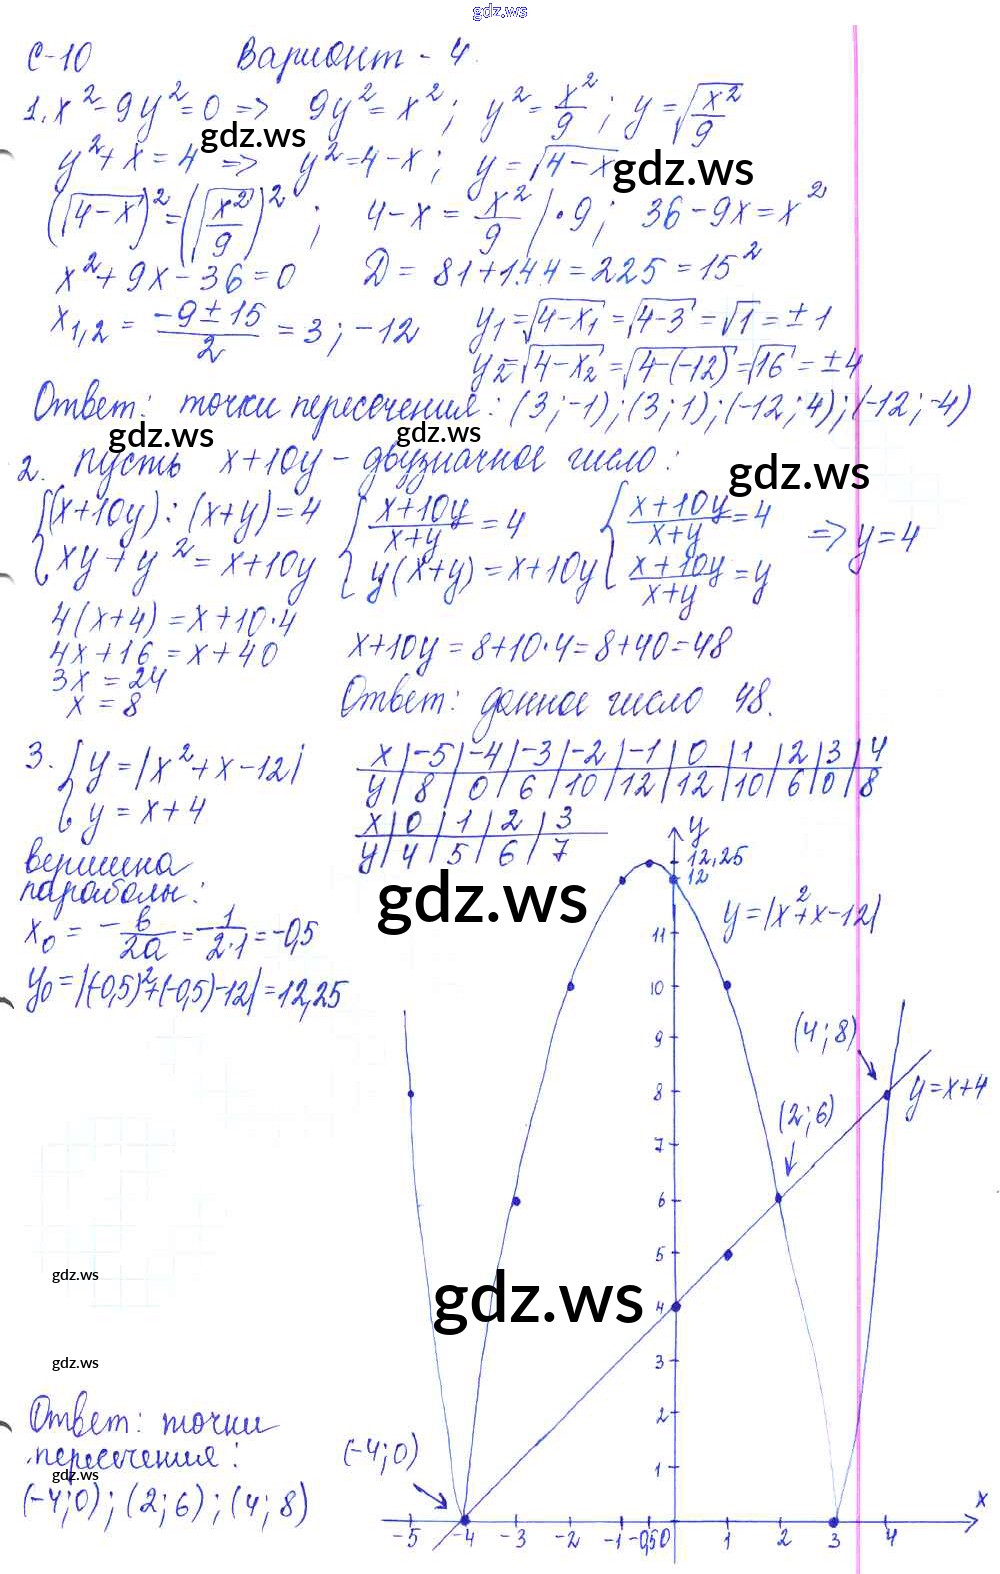 gdz.ws
С-10 Вариант - 4.
1. x² - 9y² = 0 => 9y² = x²; y² = x²/9; y = √(x²/9)
gdz.ws
y² + x = 4 => y² = 4 - x; y = √(4 - x)
gdz.ws
(√(4 - x))² = (√(x²/9))²; 4 - x = x²/9 |·9; 36 - 9x = x²
x² + 9x - 36 = 0 D = 81 + 144 = 225 = 15²
x₁,₂ = (-9 ± 15)/2 = 3; -12 y₁ = √(4 - x₁) = √(4 - 3) = √1 = ± 1
y₂ = √(4 - x₂) = √(4 - (-12)) = √16 = ± 4
Ответ: точки пересечения: (3; -1); (3; 1); (-12; 4); (-12; -4)
gdz.ws gdz.ws
2. Пусть x + 10y - двузначное число:
gdz.ws
{(x + 10y) : (x + y) = 4 {(x + 10y)/(x + y) = 4 {(x + 10y)/(x + y) = 4 => y = 4
xy + y² = x + 10y y(x + y) = x + 10y (x + 10y)/(x + y) = y
4(x + 4) = x + 10·4
4x + 16 = x + 40 x + 10y = 8 + 10·4 = 8 + 40 = 48
3x = 24
x = 8 Ответ: данное число 48.
3. {y = |x² + x - 12|
y = x + 4
x | -5 | -4 | -3 | -2 | -1 | 0 | 1 | 2 | 3 | 4
y | 8 | 0 | 6 | 10 | 12 | 12 | 10 | 6 | 0 | 8
x | 0 | 1 | 2 | 3
y | 4 | 5 | 6 | 7
вершина
параболы:
x₀ = -в/2a = -1/2·1 = -0,5
y₀ = |(-0,5)² + (-0,5) - 12| = 12,25
gdz.ws
y
12,25
12
y = |x² + x - 12|
11
10
9
(4; 8)
8
y = x + 4
(2; 6)
7
6
5
gdz.ws
gdz.ws
4
3
gdz.ws
2
1
(-4; 0)
Ответ: точки
пересечения:
gdz.ws
(-4; 0); (2; 6); (4; 8)
x
-5 -4 -3 -2 -1 -0,5 0 1 2 3 4